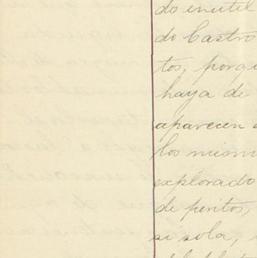 do inutil
do Castro
tos, porqu
haya de
aparecen
los mism
explorado
de peritos,
si sola,